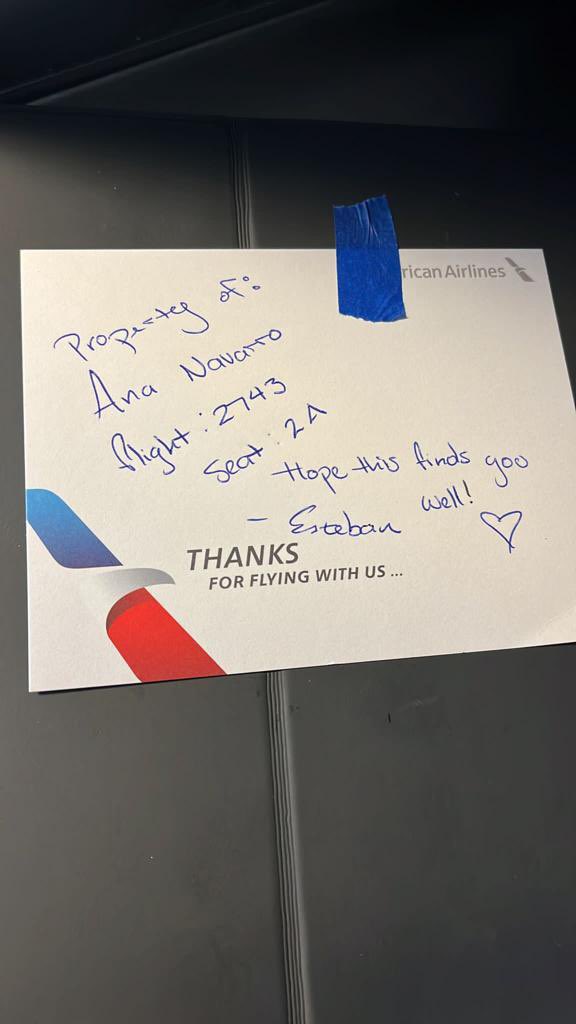 rican Airlines
Property of:
Ana Navarro
flight: 2743
Seat: 2A
Hope this finds you
well!
- Esteban
THANKS
FOR FLYING WITH US ...